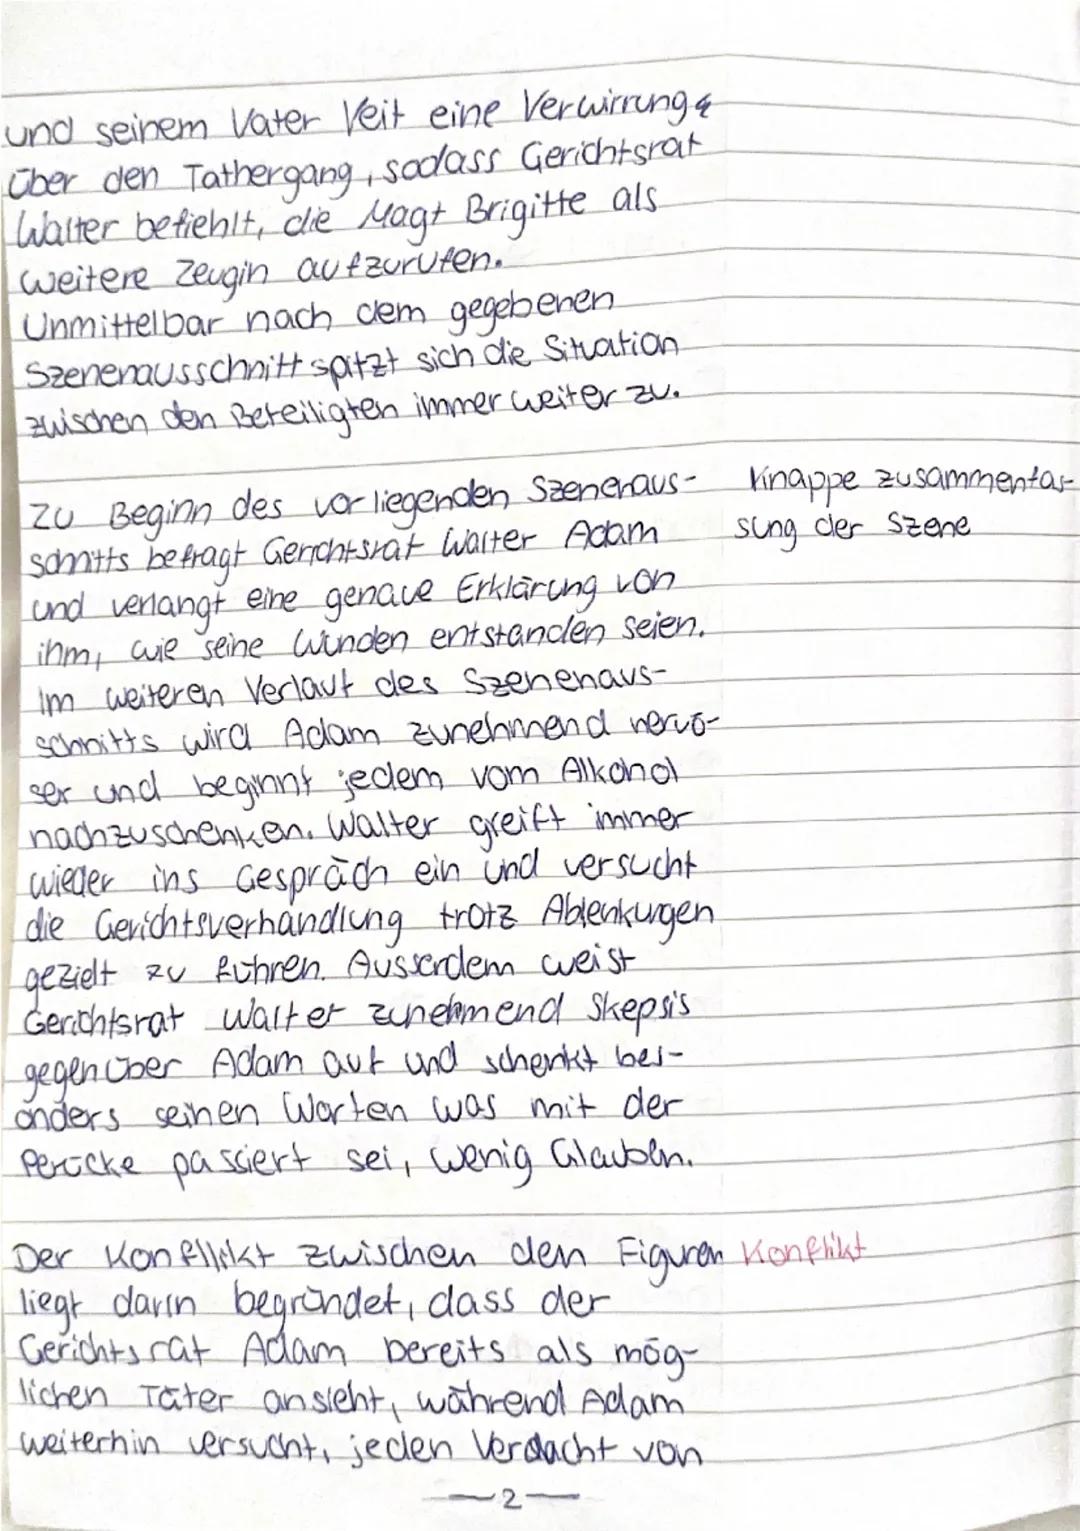 und seinem Vater Veit eine Verwirrung
über den Tathergang, sodass Gerichtsrat
Walter befiehlt, die Magt Brigitte als
weitere Zeugin aufzurufen.
Unmittelbar nach dem gegebenen
Szenenausschnitt spitzt sich die Situation
zwischen den Beteiligten immer weiter zu.
Zu Beginn des vorliegenden Szenenaus-
schnitts befragt Gerichtsrat Walter Adam
und verlangt eine genaue Erklärung von
ihm, wie seine Wunden entstanden seien.
Im weiteren Verlauf des Szenenaus-
schnitts wird Adam zunehmend nervö-
ser und beginnt jedem vom Alkohol
nachzuschenken. Walter greift immer
wieder ins Gespräch ein und versucht
die Gerichtsverhandlung trotz Ablenkungen
gezielt zu führen. Ausserdem weist
Gerichtsrat Walter zunehmend Skepsis
gegenüber Adam auf und schenkt bes-
onders seinen Worten was mit der
Perücke passiert sei, wenig Glauben.
Knappe Zusammenfas-
sung der Szene
Der Konflikt zwischen den Figuren
liegt darin begründet, dass der
Gerichtsrat Adam bereits als mög-
lichen Täter ansieht, während Adam
weiterhin versucht, jeden Verdacht von
Konflikt
— 2 —